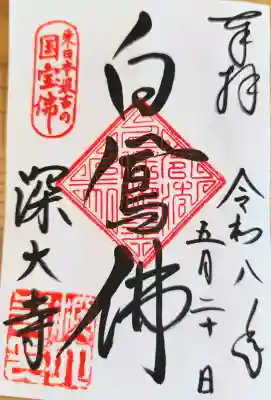 奉拝
令和八年
五月二十日
白鳳佛
東日本最古の
国宝佛
深大寺